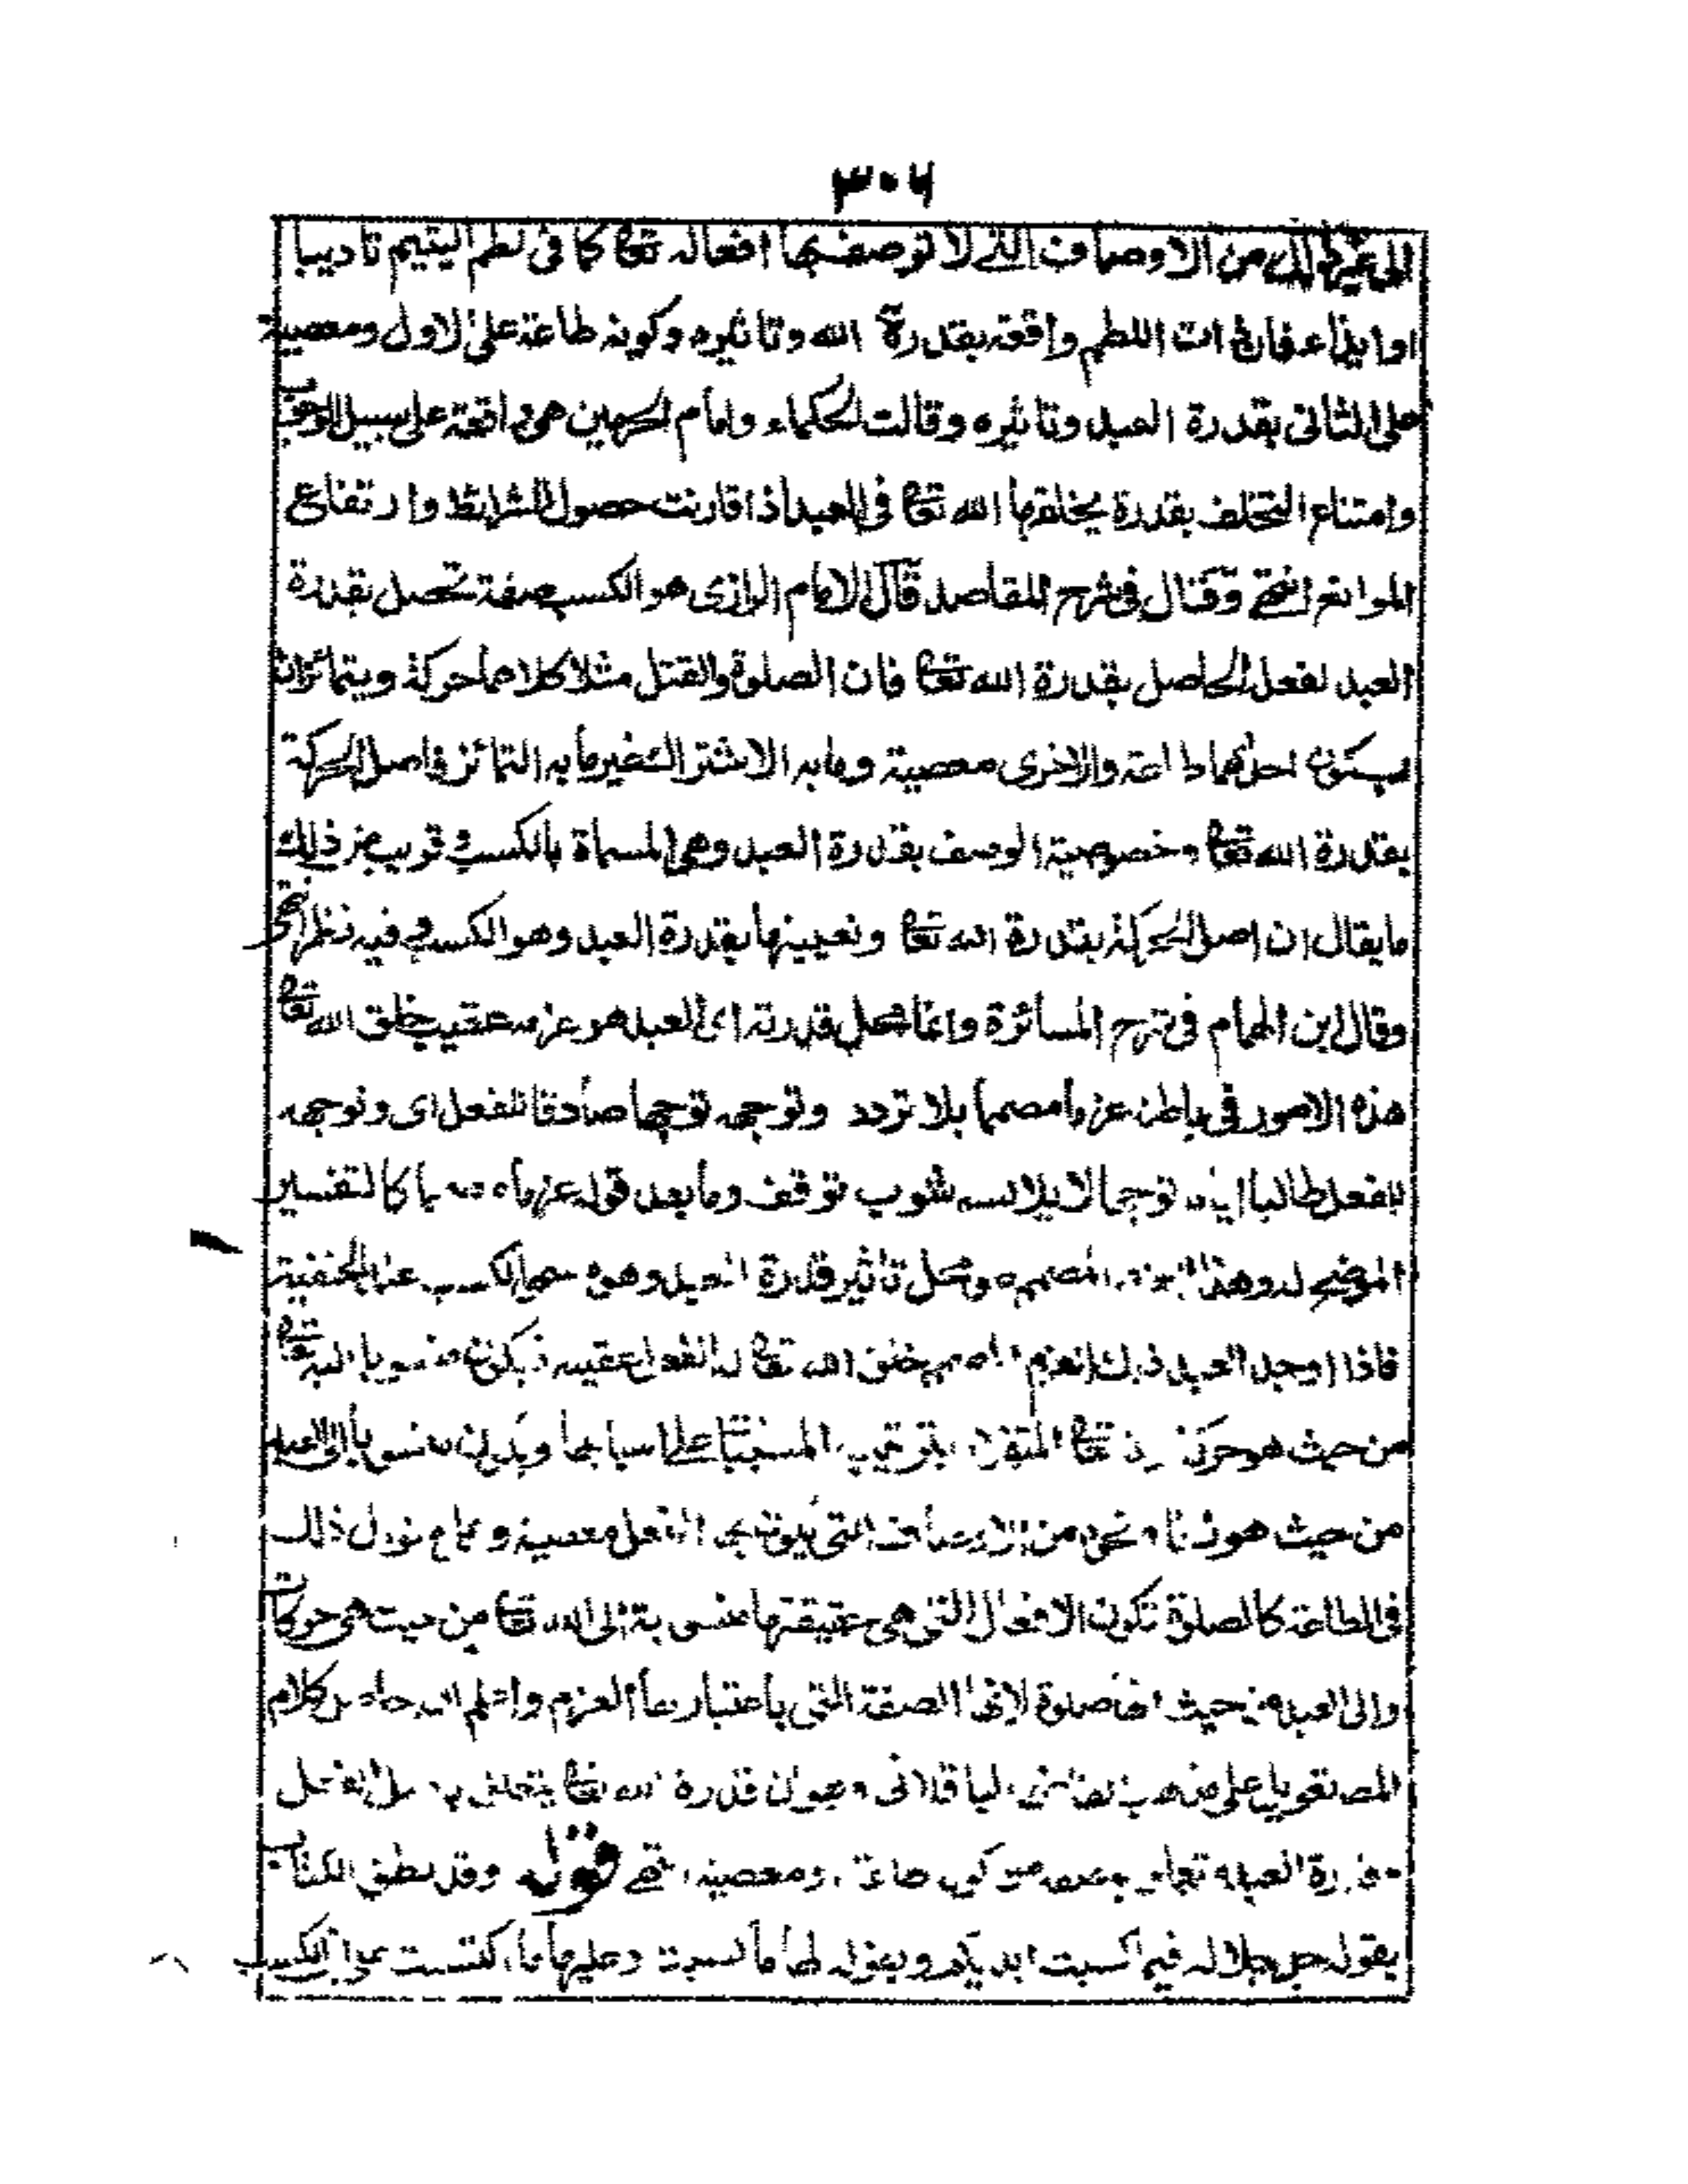 ٣٠٦
الى غير ذلك من الاوصاف التى لا توصف بها افعاله تعا كما فى لطم اليتيم تاديبا
او ايذاء فان ذات اللطم واقعة بقدرة الله وتاثيره وكونه طاعة على الاول ومعصية
على الثانى بقدرة العبد وتاثيره وقالت الحكماء وامام الحرمين هى واقعة على سبيل الوجوب
وامتناع التخلف بقدرة يخلقها الله تعا فى العبد اذا قارنت حصول الشرائط وارتفاع
الموانع انتهى وقال فى شرح المقاصد قال الامام الرازى هو الكسب صفة تحصل بقدرة
العبد لفعل الحاصل بقدرة الله تعا فان الصلوة والقتل مثلا كلاهما حركة ويتمائزان
بكون احدهما طاعة والاخرى معصية وما به الاشتراك غير ما به التمائز فاصل الحركة
بقدرة الله تعا وخصوصية الوصف بقدرة العبد وهى المسماة بالكسب و قريب من ذلك
ما يقال ان اصل الحركة بقدرة الله تعا وتعيينها بقدرة العبد وهو الكسب وفيه نظر انتهى
وقال ابن الهمام فى شرح المسائرة وانما محل قدرته اى العبد هو عزمه عقيب خلق الله تعا
هذه الامور فى باطنه عزما مصمما بلا تردد وتوجهه توجها صادقا للفعل اى وتوجهه
للفعل طالبا اياه توجها لا يلابسه شوب توقف وما بعد قوله عزما مصمما كالتفسير
الموضح له وهذا العزم المصمم هو محل تاثير قدرة العبد وهو مسمى الكسب عند الحنفية
فاذا اوجد العبد ذلك العزم المصمم خلق الله تعا له الفعل عقيبه فيكون منسوبا اليه تعا
من حيث هو حركة تعا المتفرد بترتيب المسببات على اسبابها ويكون منسوبا الى العبد
من حيث هو زنا ونحوه من الاوصاف التى يكون بها الفعل معصية و ذلك
فى الطاعة كالصلوة تكون الافعال التى هى حقيقتها منسوبة الى الله تعا من حيث هى حركات
والى العبد من حيث انها صلوة لانها الصفة التى باعتبارها العزم واعلم ان حاصل كلام
المص تعويل على مذهب القاضى الباقلانى وهو ان قدرة الله تعا يتعلق باصل الفعل
وقدرة العبد تتعلق بوصفه من كونه طاعة ومعصية انتهى قوله وقد نطق الكتاب
بقوله جل جلاله فبما كسبت ايديكم وبقوله لها ما كسبت وعليها ما اكتسبت الكسب